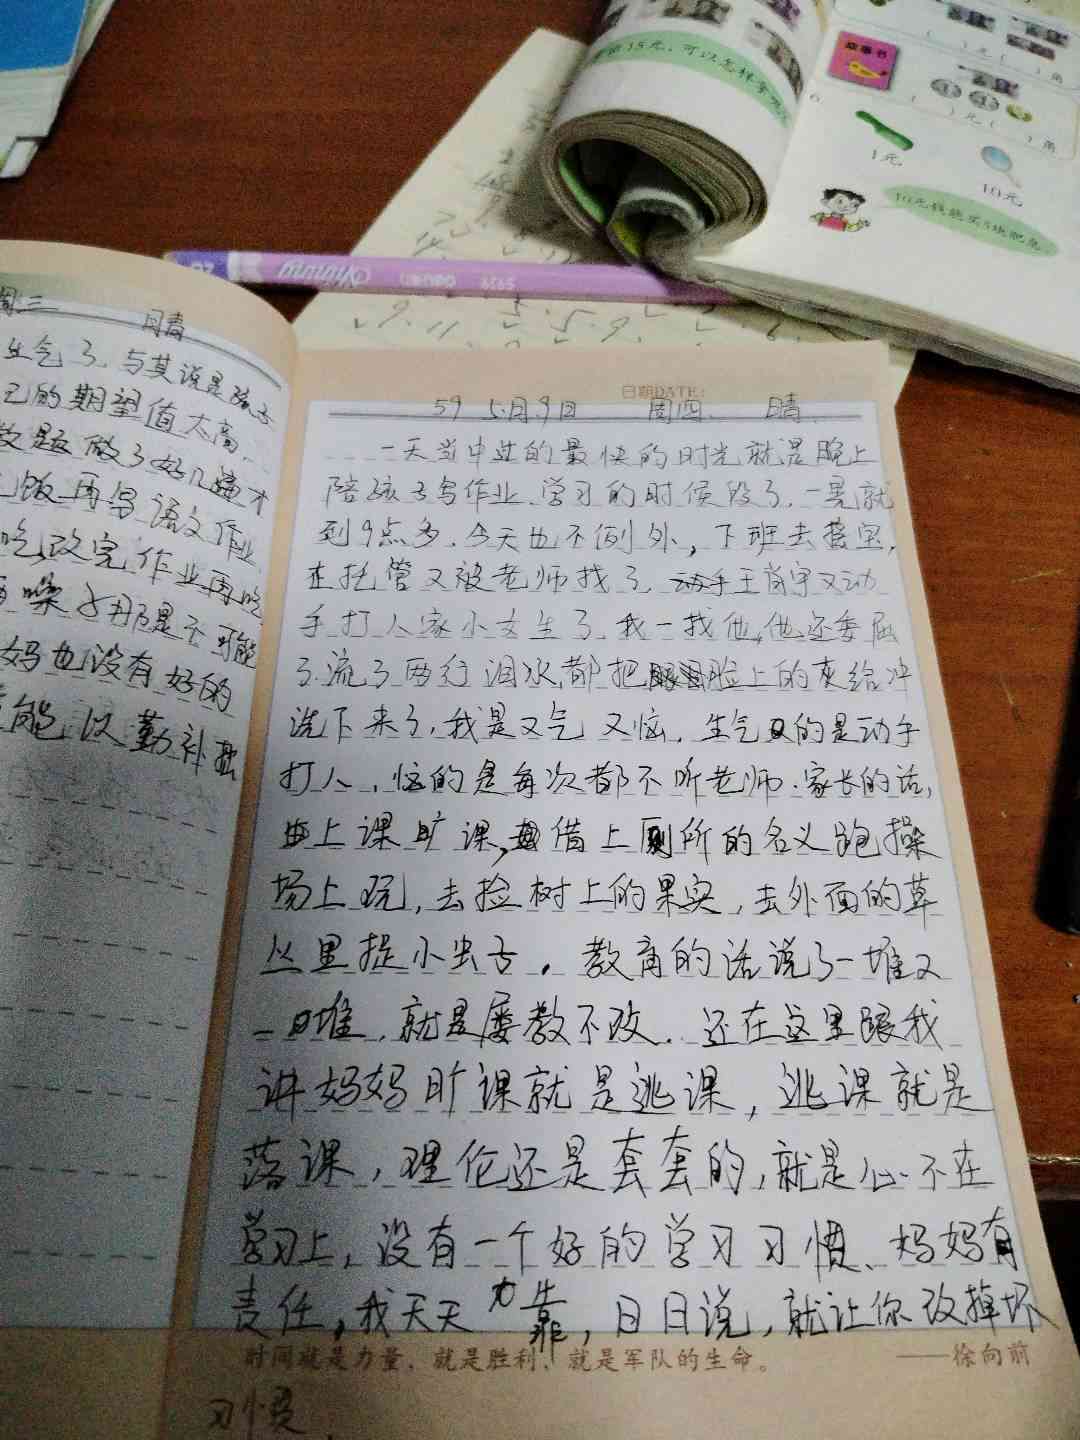 故事书
( )元( )角
6.
1元
10元
Yuying deli 5959
周三 晴
生气了.与其说是孩子
己的期望值太高.
数题做了好几遍才
饭再写语文作业
吃,改完作业再吃
那是不可能
妈也没有好的
能以勤补拙
日期DATE:
59 5月9日 周四. 晴.
一天当中过的最快的时光就是晚上
陪孩子写作业.学习的时候段了.一晃就
到9点多.今天也不例外,下班去接宝,
在托管又被老师找了.动手王肖宇又动
手打人家小女生了.我一找他,他还委屈
了.流了两行泪水,都把脸上的灰给冲
洗下来了,我是又气又恼.生气的是动手
打人,恼的是每次都不听老师.家长的话,
上课旷课,借上厕所的名义跑操
场上玩,去捡树上的果实,去外面的草
丛里捉小虫子.教育的话说了一堆又
一堆,就是屡教不改.还在这里跟我
讲妈妈旷课就是逃课,逃课就是
落课,理伦还是套套的,就是心不在
学习上,没有一个好的学习习惯、妈妈有
责任,我天天 ,日日说,就让你改掉坏
习惯.
时间就是力量、就是胜利、就是军队的生命。 ——徐向前